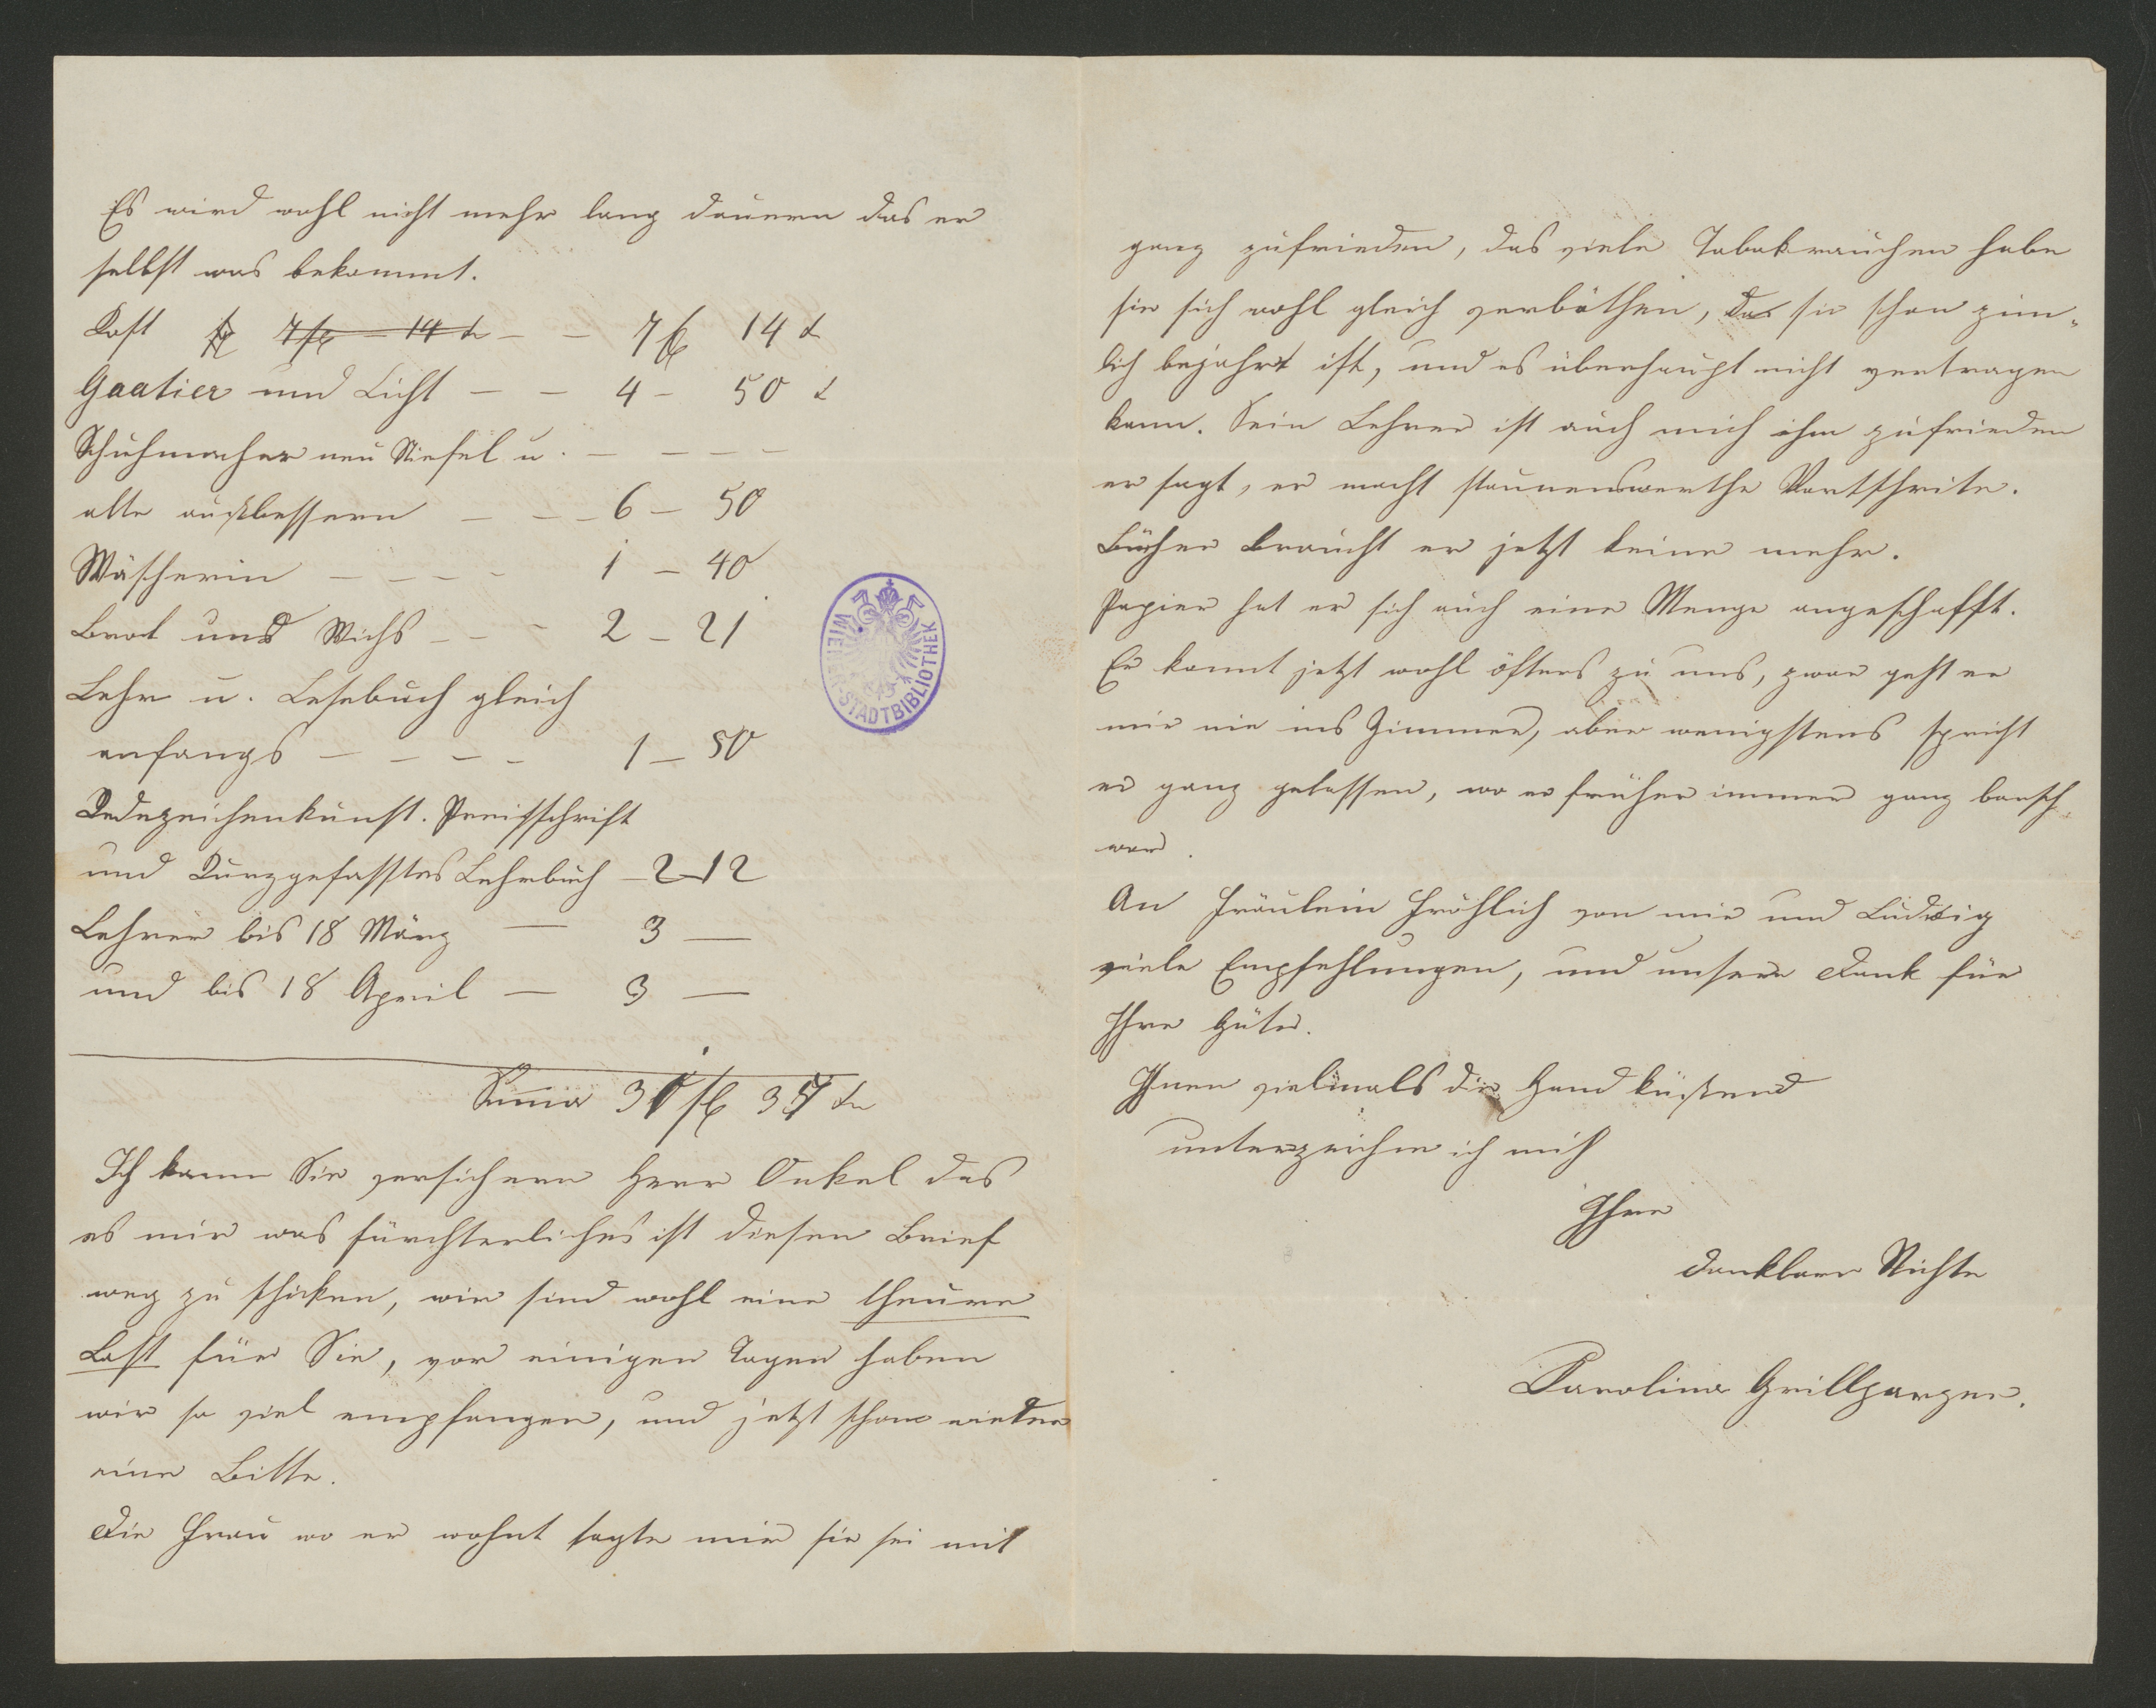 Es wird wohl nicht mehr lang dauern das er
selbst was bekommt.
Kost fl 7 fl – 14 k – – 7 fl 14 k
Gaatier und Licht – – 4 – 50 k
Schuhmacher neu Stiefel u. – – – –
alte ausbessern – – – 6 – 50
Wäscherin – – – – 1 – 40
Brod und Wichs – – – 2 – 21
Lehr u. Lesebuch gleich
anfangs – – – – 1 – 50
Redezeichenkunst. Preisschrift
und Kurzgefasstes Lehrbuch – 2 – 12
Lehrer bis 18 März — 3 —
und bis 18 April — 3 —
Suma 31 fl 37 kr
Ich kann Sie versichern Herr Onkel das
es mir was fürchterliches ist diesen Brief
weg zu schicken, wir sind wohl eine theure
Last für Sie, vor einigen Tagen haben
wir so viel empfangen, und jetzt schon wieder
eine Bitte.
Die Frau wo er wohnt sagte mir sie sei mit
WIENER STADTBIBLIOTHEK
ganz zufrieden, das viele Tabakrauchen habe
sie sich wohl gleich verböthen, das sie schon zim-
lich bejahrt ist, und es überhaupt nicht vertragen
kann. Sein Lehrer ist auch mich ihm zufrieden
er sagt, er macht staunenswerthe Vortschrite.
Bücher braucht er jetzt keine mehr.
Papier hat er sich auch eine Menge angeschafft.
Er komt jetzt wohl öfters zu uns, zwar geht er
mir nie ins Zimmer, aber wenigstens spricht
er ganz gelassen, wo er früher immer ganz barsch
war.
An Fräulein Fröhlich von mir und Ludwig
viele Empfehlungen, und unsern Dank für
Ihre Güte.
Ihnen vielmals die Hand küssend
unterzeichne ich mich
Ihre
dankbare Nichte
Karolina Grillparzer.